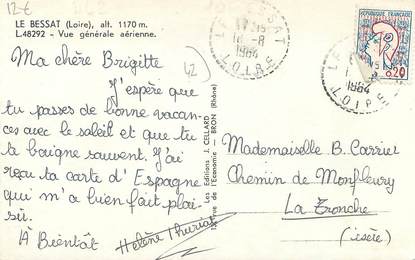 12-€
LE BESSAT (Loire), alt. 1170 m.
L.48292 - Vue générale aérienne.
Ma chère Brigitte
42
J'espère que
tu passes de bonne vacan-
ces avec le soleil et que tu
te baigne souvent. J'ai
reçu ta carte d'Espagne
qui m'a bien fait plai-
sir.
À Bientôt
Hélène
Les Editions J. CELLARD
rue de l'Economie - BRON (Rhône)
LE BESSAT
17 H 15
18-8
1964
LOIRE
REPUBLIQUE FRANCAISE
0,20
1964
LOIRE
Mademoiselle B. Carrier
Chemin de Monfleury
La Tronche
(isère)